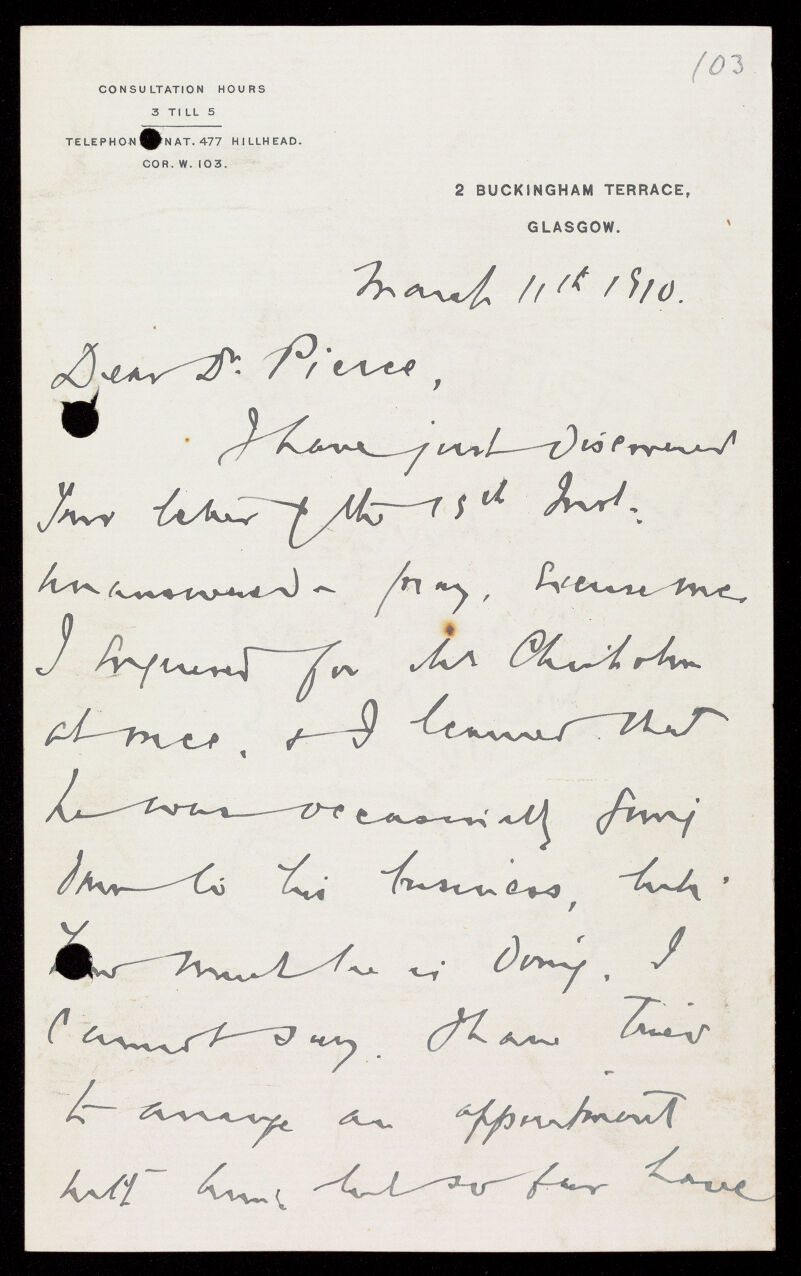 103
CONSULTATION HOURS
3 TILL 5
TELEPHON NAT. 477 HILLHEAD.
COR. W. 103.
2 BUCKINGHAM TERRACE,
GLASGOW.
March 11th 1910.
Dear Dr. Pierce,
I have just discovered
Your letter of the 15th Inst.
unanswered - pray, excuse me.
I enquired for Mr Chisholm
at once, & I learned that
he was occasionally going
down to his business, but
how much he is doing, I
cannot say. I have tried
to arrange an appointment
with him, but so far have